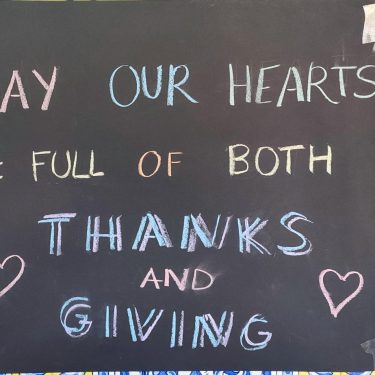 AY OUR HEARTS
FULL OF BOTH
THANKS
AND
GIVING